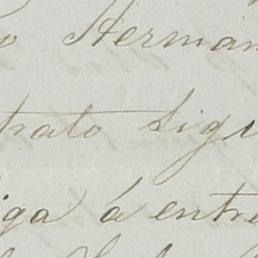 o Herman
trato sigu
iga á entre